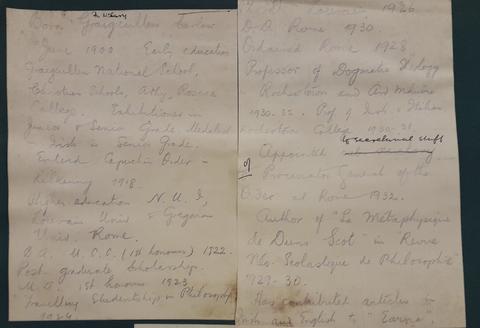 Born Graiguecullen Carlow
June 1900 Early education
Graiguecullen National School,
Christian Schools, Athy,
College. Exhibitions in
Junior & Senior Grade Medalist
in Irish in Senior Grade.
Entered Capuchin Order -
Kilkenny 1918.
Higher education N.U.I,
Louvain Univ & Gregorian
Univ. Rome.
B.A. U.C.C. (1st honours) 1922.
Post graduate Scholarship.
M.A. 1st honours 1923
Travelling Studentship in Philosophy
1924
1926
D.D. Rome 1930
Ordained Rome 1928
Professor of Dogmatic Theology
Rochestown and Ard Mhuire
1930-32. Prof of Irish & Italian
Rochestown College 1930-31
to secretarial staff
Appointed
of Procurator General of the
Order at Rome 1932.
Author of "La Métaphysique
de Duns Scot" in Revue
Néo-Scolastique de Philosophie
1929-30.
Has contributed articles in
Irish and English to